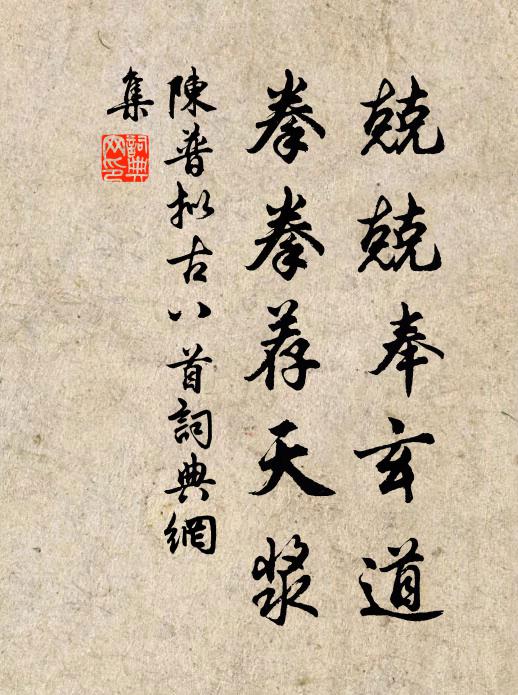 兢兢奉玄道
拳拳荐天漿
陳普拟古八首詞典網
集
詞典网印